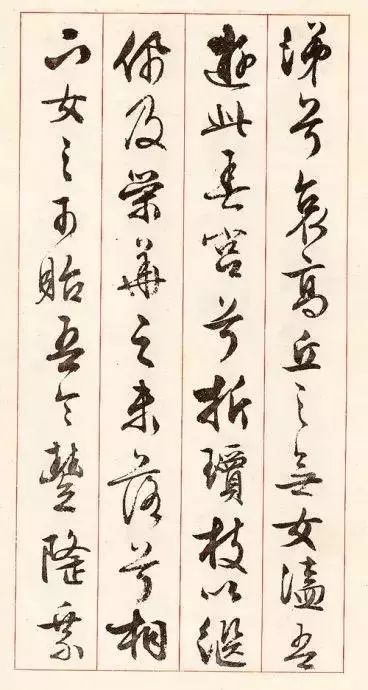 涕兮哀高丘之無女溘吾
遊此春宮兮折瓊枝以繼
佩及榮華之未落兮相
下女之可貽吾令豐隆乘